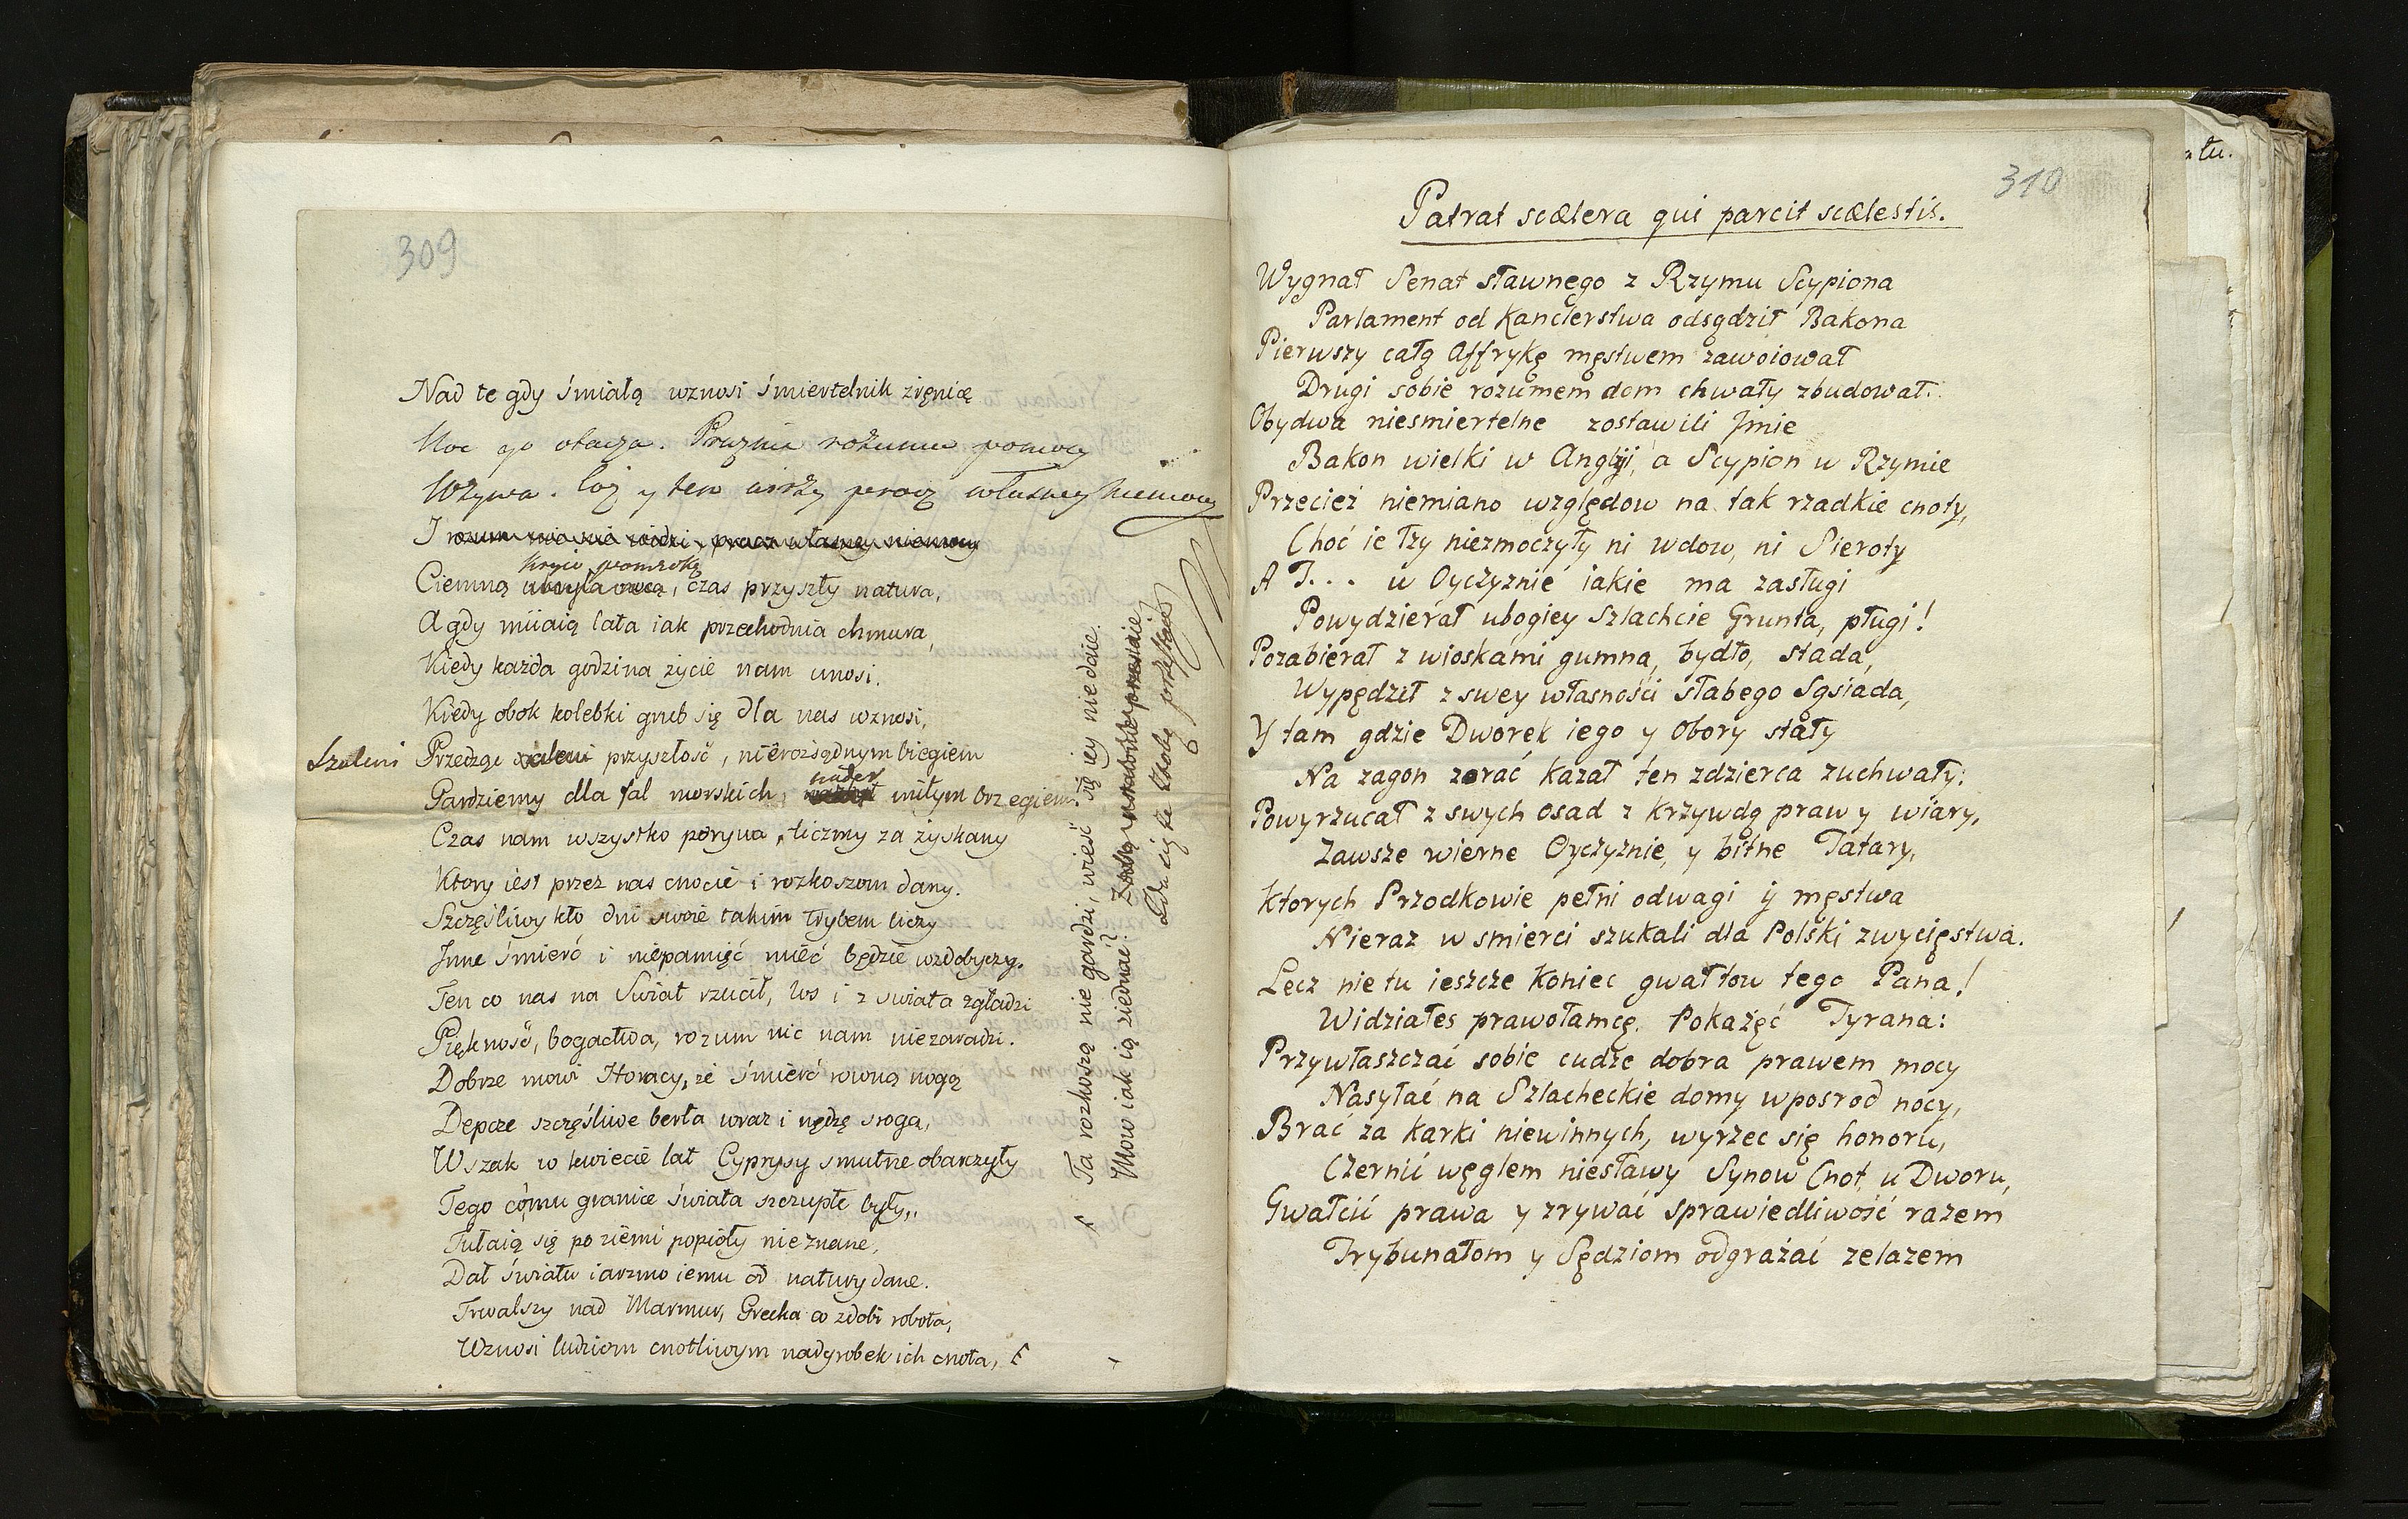 309
Nad te gdy śmiałą wznosi śmiertelnik zręnicę
Noc go otacza. Prozno rozumu pomocy
Wzywa. Coż y ten widzy procz własney niemocy
I rozum nic nie widzi, procz własney niemocy
kryie pomroką
Ciemną, czas przyszły natura,
A gdy miiaią lata iak przechodnia chmura,
Kiedy każda godzina życie nam unosi.
Kiedy obok kolebki grub się dla nas wznosi,
Szaleni Przedrze szaleni przyszłość, nierozsądnym biegiem
nader
Gardziemy dla fal morskich, miłym brzegiem.
Czas nam wszystko porywa, liczmy za zyskany
Ktory iest przez nas cnocie i rozkoszom dany.
Szczęśliwy kto dni swoie takim trybem liczy
Inne śmierć i niepamięć mieć będzie wzdobyczy.
Ten co nas na Swiat rzucił, los i z swiata zgładzi
Piękność, bogactwa, rozum nic nam niezaradzi.
Dobrze mowi Horacy, że śmierć rowną nogą
Depcze szczęśliwe berła wraz i nędzę srogą,
Wszak w kwiecie lat Cyprysy smutne obarczyły
Tego comu granice świata szczupłe były,
Tułaią się po ziemi popioły nieznane,
Dał światu iarzmo iemu od natury dane.
Trwalszy nad Marmur, Grecka co zdobi robota,
Wznosi ludziom cnotliwym nadgrobek ich cnota, ł
ł Ta rozkoszą nie gardzi, wieść się iey nie daie.
Mow iak ią ziednać?
Zda się że Tobą przestaie
310
Patrat scælera qui parcit scælestis.
Wygnał Senat sławnego z Rzymu Scypiona
Parlament od kanclerstwa odsądził Bakona
Pierwszy całą Affrykę męstwem zawoiował
Drugi sobie rozumem dom chwały zbudował.
Obydwa niesmiertelne zostawili Jmie
Bakon wielki w Anglyi, a Scypion w Rzymie
Przecież niemiano względow na tak rzadkie cnoty,
Choć ie łzy niezmoczyły ni wdow, ni Sieroty
A T... w Oyczyznie iakie ma zasługi
Powydzierał ubogiey Szlachcie Grunta, pługi!
Pozabierał z wioskami gumna, bydło, stada,
Wypędził z swey własności słabego Sąsiada,
Y tam gdzie Dworek iego y Obory stały
Na zagon zorać kazał ten zdzierca zuchwały:
Powyrzucał z swych osad z krzywdą praw y wiary,
Zawsze wierne Oyczyznie, y bitne Tatary,
Ktorych Przodkowie pełni odwagi ÿ męstwa
Nieraz w smierci szukali dla Polski zwycięstwa.
Lecz nie tu ieszcze koniec gwałtow tego Pana!
Widziałes prawołamcę. Pokażęć Tyrana:
Przywłaszczać sobie cudze dobra prawem mocy
Nasyłać na Szlacheckie domy wposrod nocy,
Brać za karki niewinnych, wyrzec się honoru,
Czernić węglem niesławy Synow Cnot, u Dworu,
Gwałcić prawa y zrywać sprawiedliwość razem
Trybunałom y Sędziom odgrażać zelazem
łu.